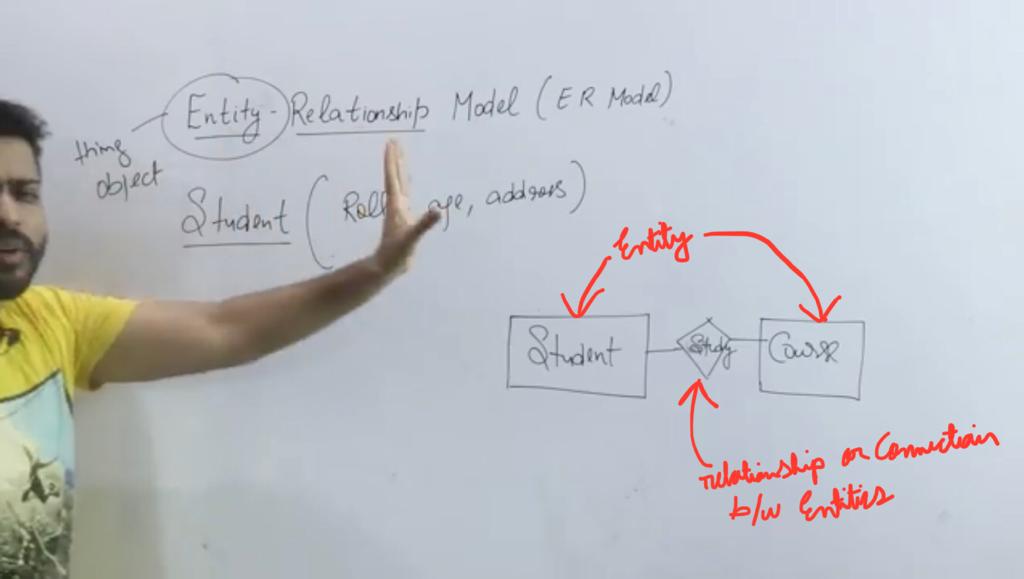 Entity - Relationship Model (ER Model)
thing
object
Student (Roll age, address)
Entity
Student
Study
Course
relationship or Connection
b/w Entities